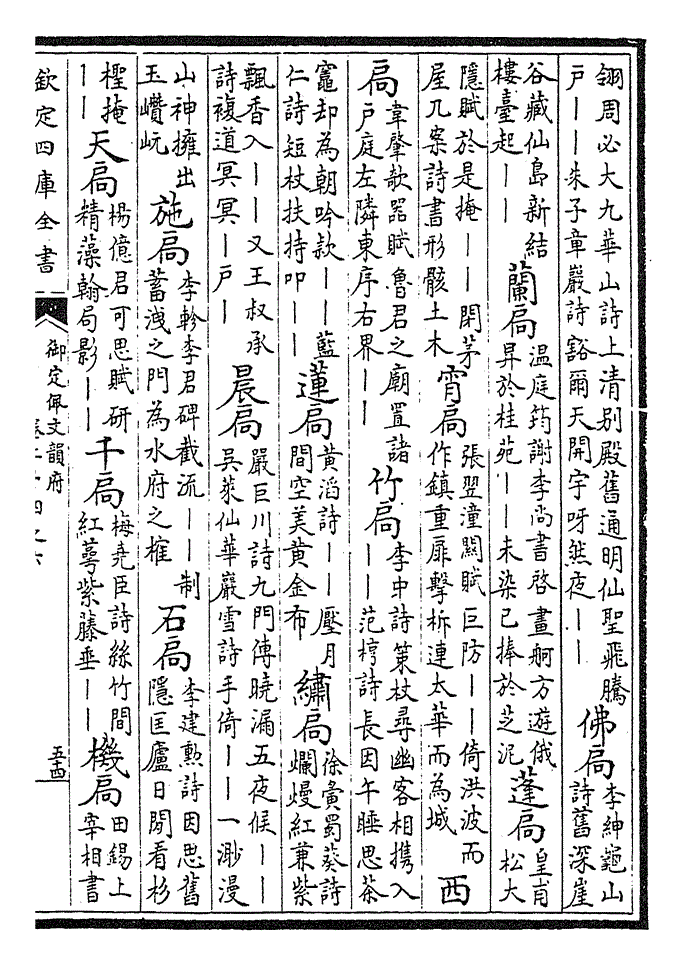 翎周必大九華山詩上清别殿舊通明仙聖飛騰
戸｜｜朱子章巖詩豁爾天開宇呀然夜｜｜
佛扃
李紳龜山
詩舊深崖
谷藏仙島新結
樓臺起｜｜
蘭扃
温庭筠謝李尚書啓畫舸方遊俄
昇於桂苑｜｜未染已捧於芝泥
蓬扃
皇甫
松大
隱賦於是掩｜｜閉茅
屋几案詩書形骸土木
宵扃
張翌潼關賦巨防｜｜倚洪波而
作鎮重扉擊柝連太華而為城
西
扃
韋肇欹器賦魯君之廟置諸
戸庭左隣東序右界｜｜
竹扃
李中詩策杖尋幽客相攜入
｜｜范梈詩長因午睡思茶
竈却為朝吟款｜｜藍
仁詩短杖扶持叩｜｜
蓮扃
黄滔詩｜｜壓月
間空美黄金布
繡扃
徐夤蜀葵詩
爛熳紅兼紫
飄香入｜｜又王叔承
詩複道冥冥｜戸｜
晨扃
嚴巨川詩九門傳曉漏五夜候｜｜
吳萊仙華巖雪詩手倚｜｜一渺漫
山神擁出
玉巑岏
施扃
李軫李君碑截流｜｜制
蓄洩之門為水府之榷
石扃
李建勲詩因思舊
隱匡廬日閒看杉
檉掩
｜｜
天扃
楊億君可思賦研
精藻翰局影｜｜
千扃
梅堯臣詩絲竹間
紅萼紫藤垂｜｜
機扃
田錫上
宰相書
欽定四庫全書
御定佩文韻府
卷二十四之六
五十四